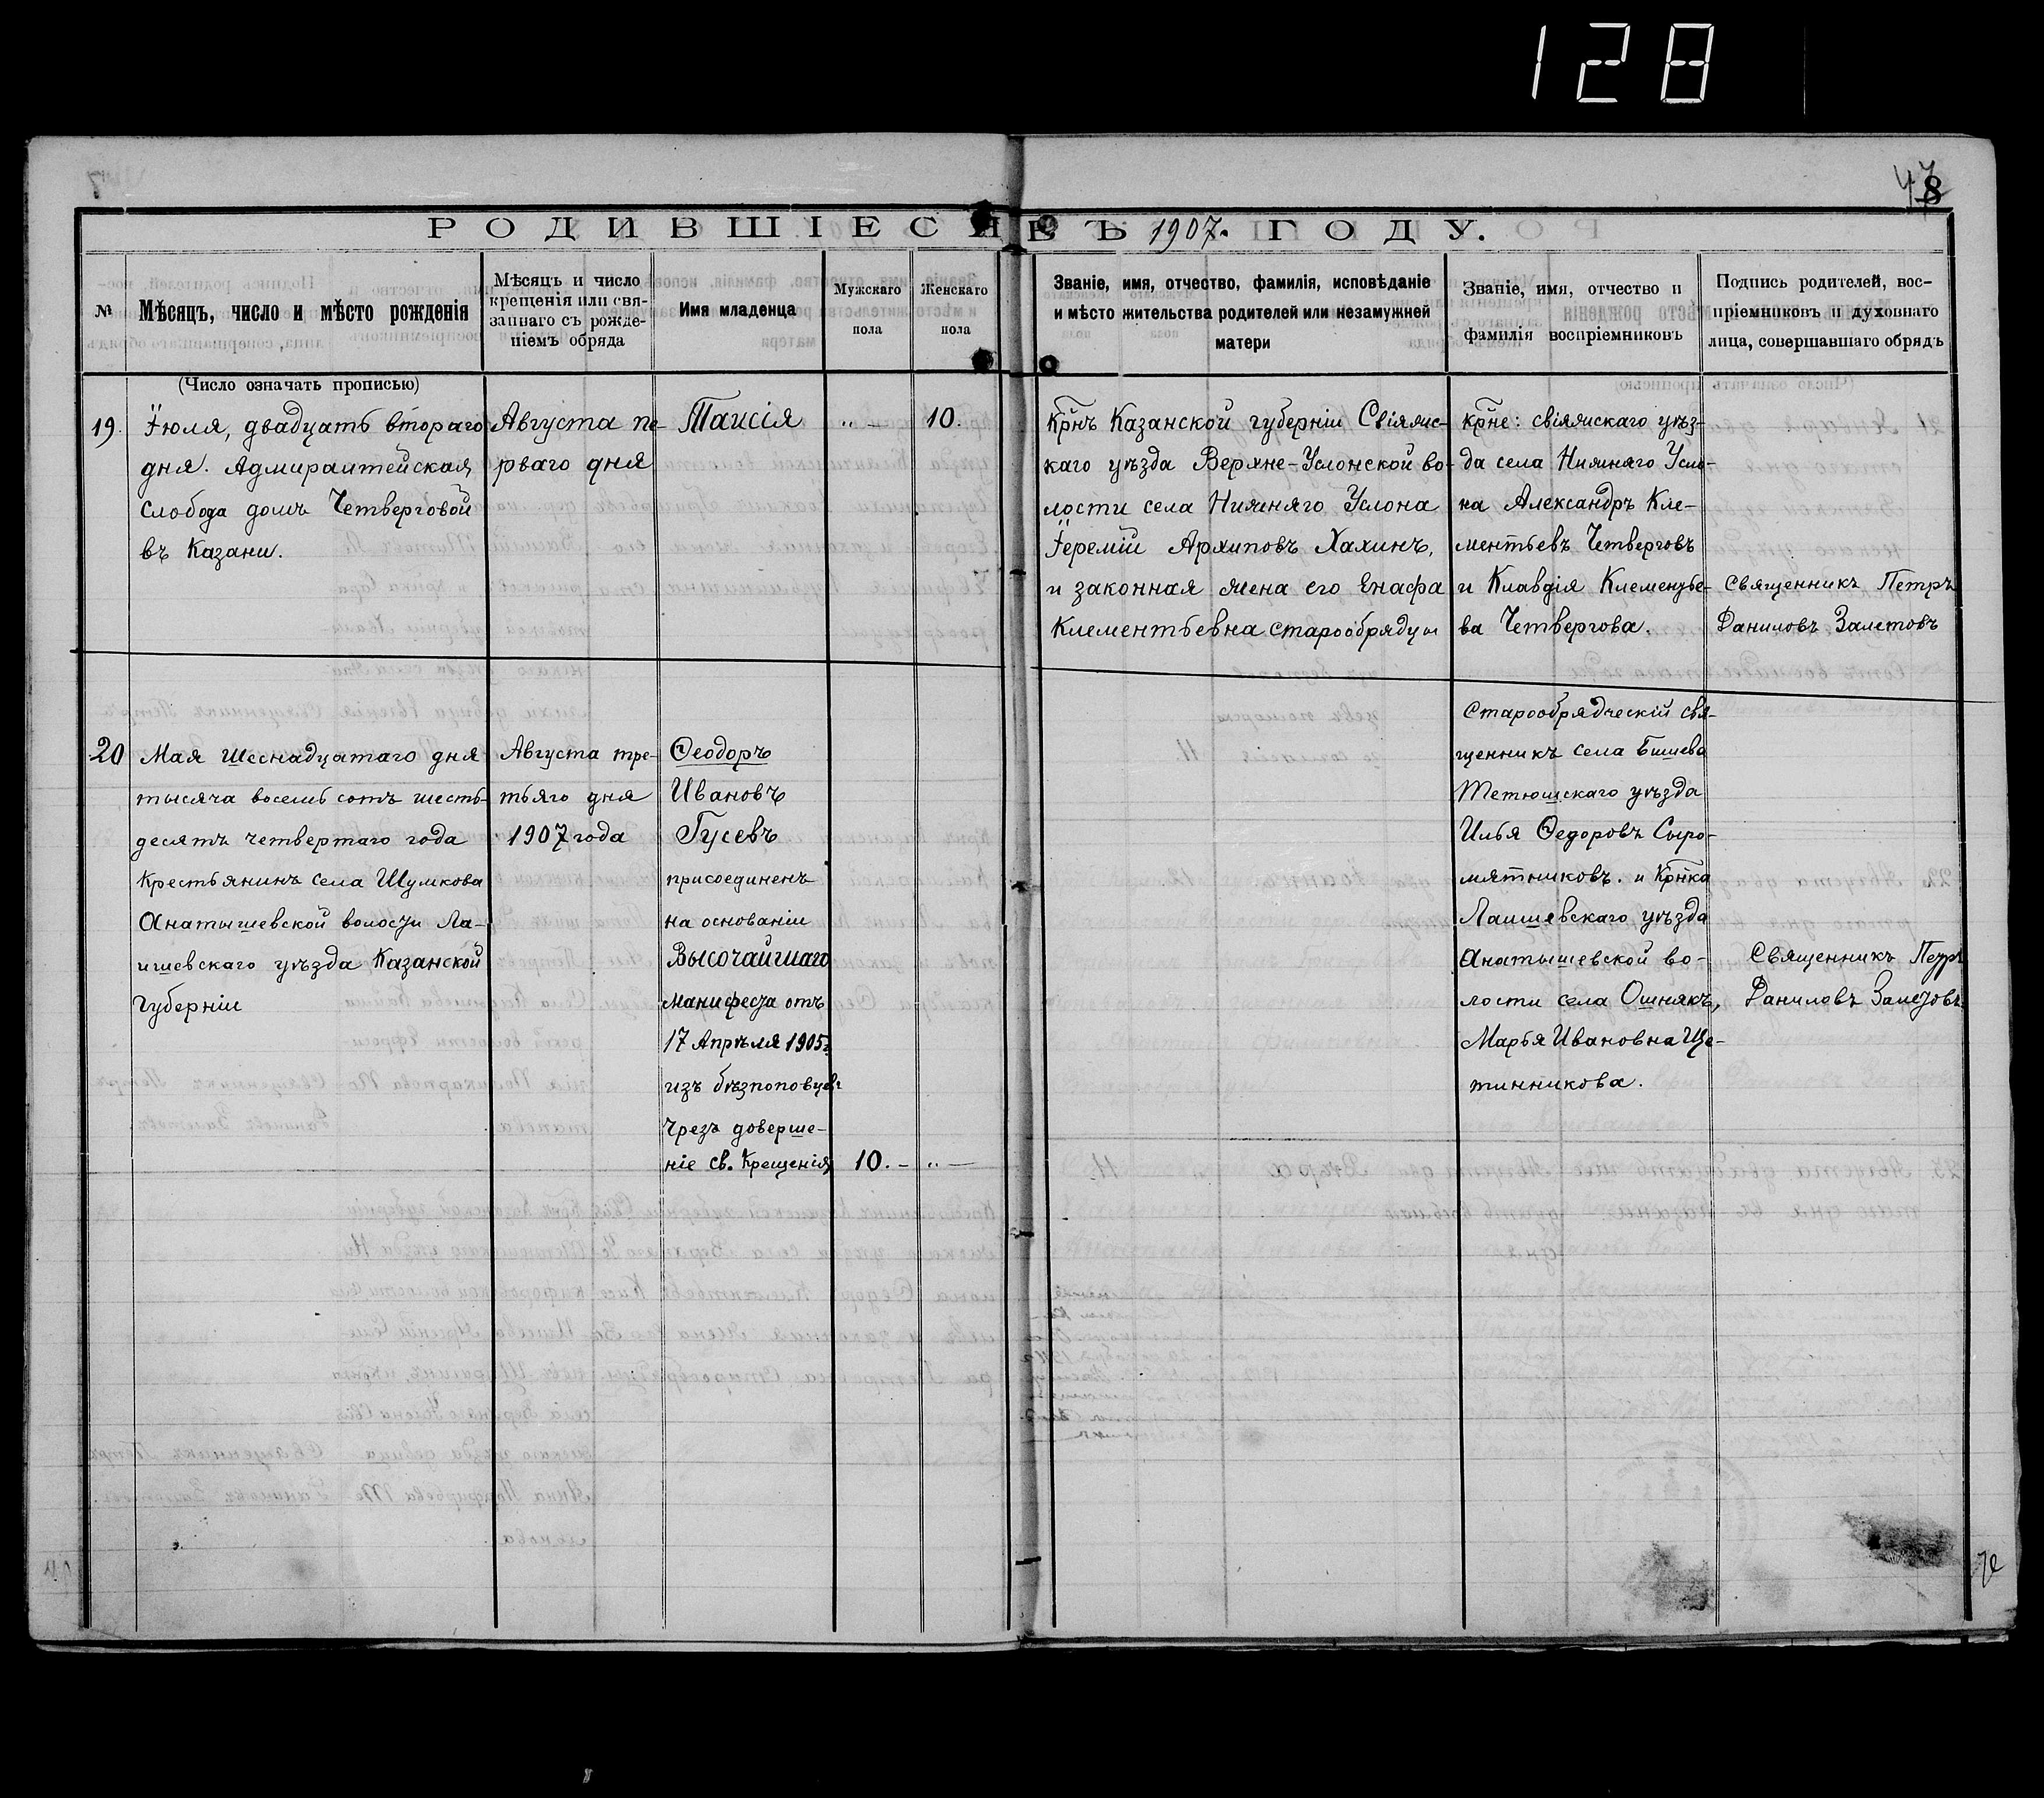 128
47
8
РОДИВШІЕСЯ ВЪ 1907. ГОДУ.
№
Мѣсяцъ, число и мѣсто рожденія
Мѣсяцъ и число
крещенія или свя-
заннаго съ рожде-
ніемъ обряда
Имя младенца
Мужскаго
пола
Женскаго
пола
Званіе, имя, отчество, фамилія, исповѣданіе
и мѣсто жительства родителей или незамужней
матери
Званіе, имя, отчество и
фамилія воспріемниковъ
Подпись родителей, вос-
пріемниковъ и духовнаго
лица, совершавшаго обрядъ
(Число означать прописью)
19.
Їюля, двадцать втораго
дня. Адмиралтейская
Слобода домъ Четверговой
въ Казани.
Августа пе-
рваго дня
Таисія
„ —
10.
Крнъ Казанской губерніи Свіяжс-
каго уѣзда Верхне-Услонской во-
лости села Нижняго Услона
Їеремій Архиповъ Хахинъ,
и законная жена его Енафа
Клементьевна старообрядцы
крне: свіяжскаго уѣз-
да села Нижняго Усло-
на Александръ Кле-
ментьевъ Четверговъ
и Клавдія Клементье-
ва Четвергова.
Священникъ Петръ
Даниловъ Залетовъ
20
Мая шеснадцатаго дня
тысяча восемь сотъ шесть-
десятъ четвертаго года
Крестьянинъ села Шумкова
Анатышевской волости Ла-
ишевскаго уѣзда Казанской
Губерніи
Августа тре-
тьяго дня
1907 года
Ѳеодоръ
Ивановъ
Гусевъ
присоединенъ
на основаніи
Высочайшаго
манифеста отъ
17 Апрѣля 1905 г.
изъ бѣзпоповцевъ
Чрезъ доверше-
ніе св. Крещенія
10. —
„ —
Старообрядческій свя-
щенникъ села Бишева
Тетюшскаго уѣзда
Илья Ѳедоровъ Сыро-
мятниковъ. и Крнка
Лаишевскаго уѣзда
Анатышевской во-
лости села Ошнякъ,
Марья Ивановна Ще-
тинникова.
Священникъ Петръ
Даниловъ Залетовъ.